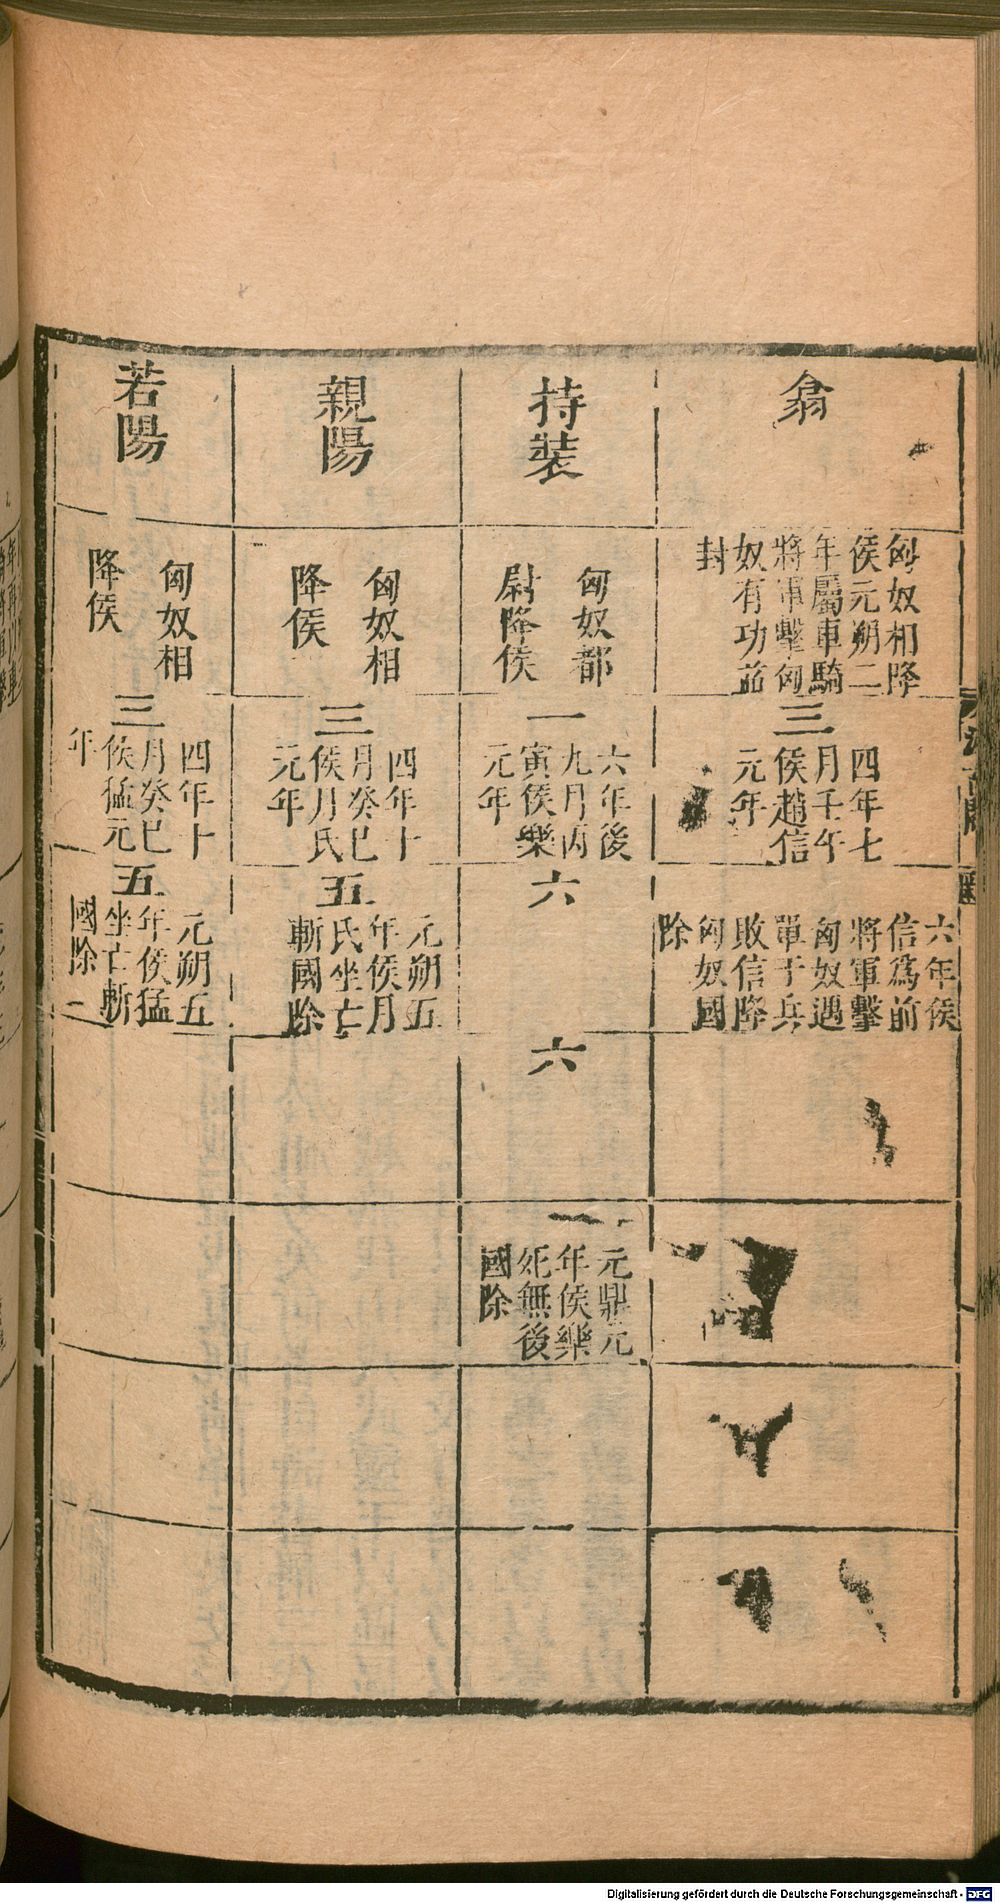 翕
匈奴相降
侯元朔二
年屬車騎
將軍擊匈
奴有功益
封
三
四年七
月壬午
侯趙信
元年
六年侯
信爲前
將軍擊
匈奴遇
單于兵
敗信降
匈奴國
除
持裝
匈奴都
尉降侯
一
六年後
九月丙
寅侯樂
元年
六
六
一
元鼎元
年侯樂
死無後
國除
親陽
匈奴相
降侯
三
四年十
月癸巳
侯月氏
元年
五
元朔五
年侯月
氏坐亡
斬國除
若陽
匈奴相
降侯
三
四年十
月癸巳
侯猛元
年
五
元朔五
年侯猛
坐亡斬
國除
Digitalisierung gefördert durch die Deutsche Forschungsgemeinschaft - DFG